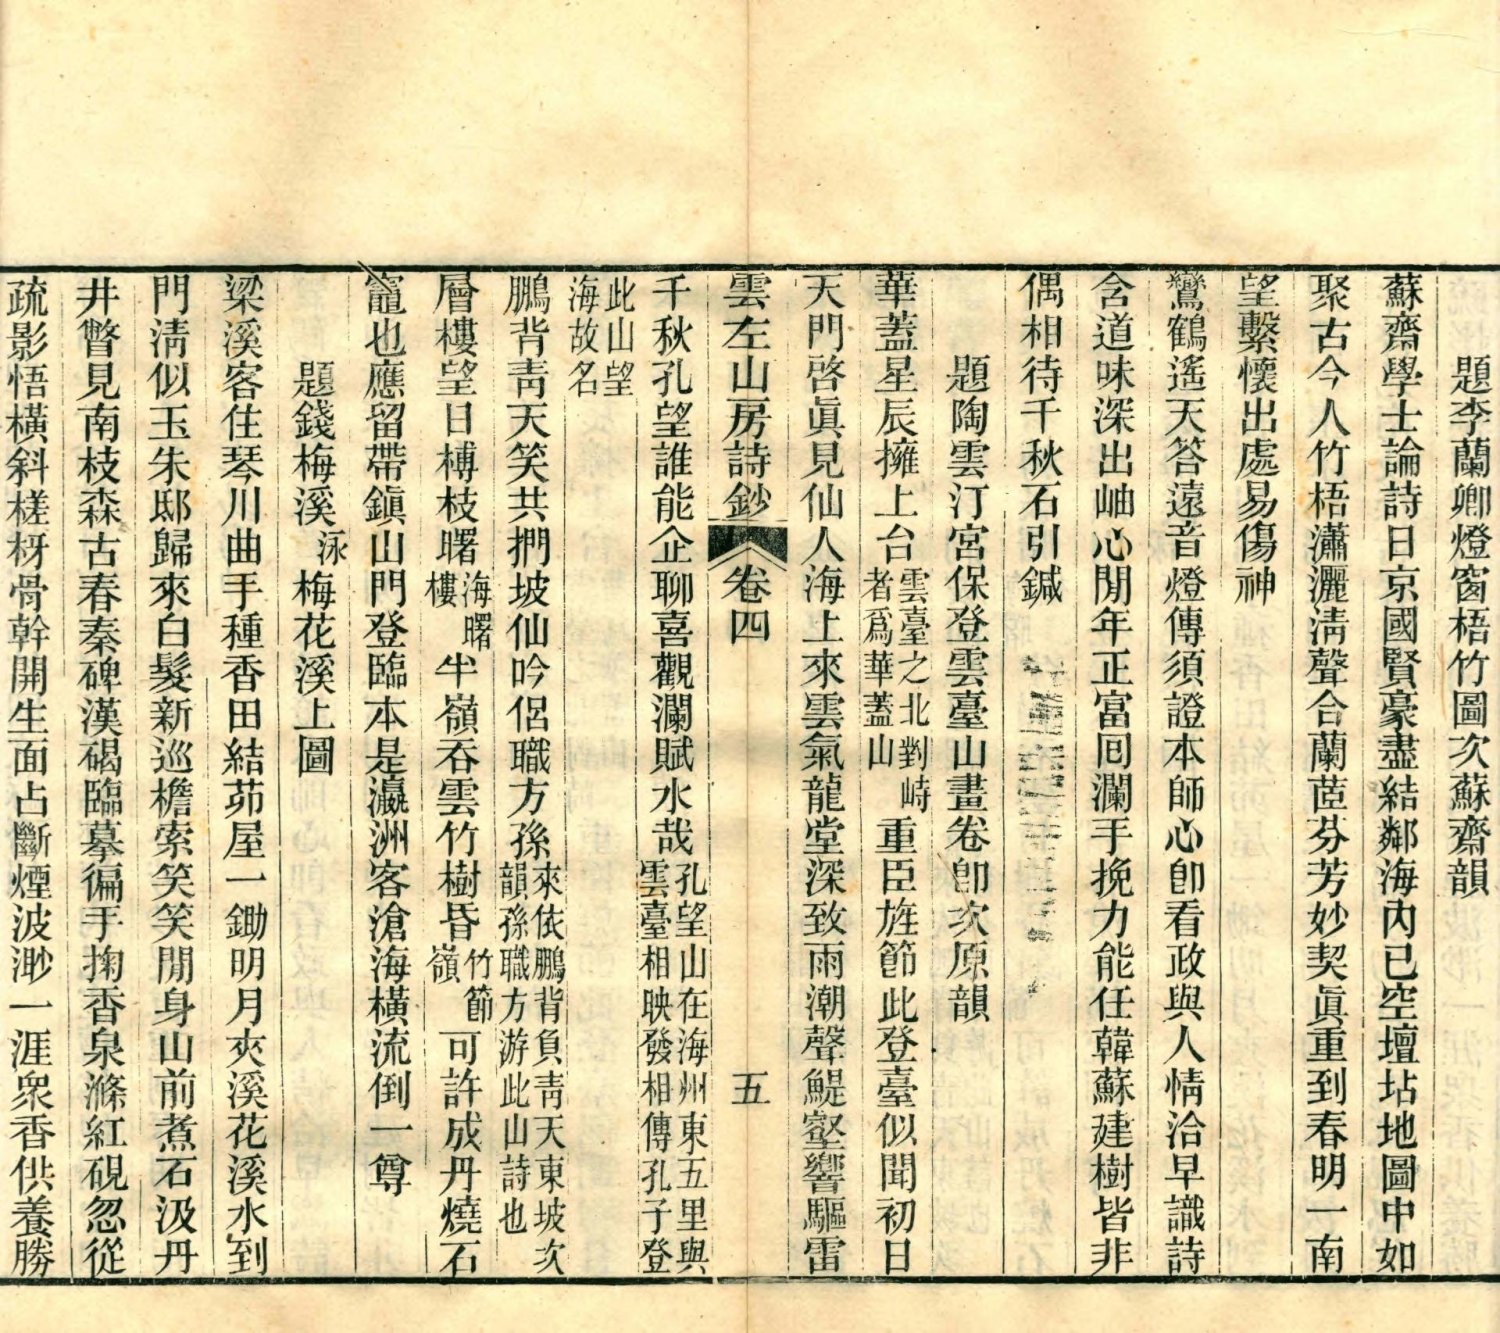 題李蘭卿燈窗梧竹圖次蘇齋韻
蘇齋學士論詩日京國賢豪盡結鄰海內已空壇坫地圖中如
聚古今人竹梧瀟灑清聲合蘭茝芬芳妙契眞重到春明一南
望繫懷出處易傷神
鸞鶴遙天答遠音燈傳須證本師心卽看政與人情洽早識詩
含道味深出岫心閒年正富囘瀾手挽力能任韓蘇建樹皆非
偶相待千秋石引鍼
題陶雲汀宮保登雲臺山畫卷卽次原韻
華蓋星辰擁上台雲臺之北對峙者爲華蓋山重臣旌節此登臺似聞初日
天門啓眞見仙人海上來雲氣龍堂深致雨潮聲鯷壑響驅雷
雲左山房詩鈔 卷四 五
千秋孔望誰能企聊喜觀瀾賦水哉孔望山在海州東五里與雲臺相映發相傳孔子登
此山望海故名
鵬背靑天笑共捫坡仙吟侶職方孫來依鵬背負靑天東坡次韻孫職方游此山詩也
層樓望日榑枝曙海曙樓半嶺吞雲竹樹昏竹節嶺可許成丹燒石
竈也應留帶鎭山門登臨本是瀛洲客滄海橫流倒一尊
題錢梅溪泳梅花溪上圖
梁溪客住琴川曲手種香田結茆屋一鋤明月夾溪花溪水到
門淸似玉朱邸歸來白髮新巡檐索笑笑閒身山前煮石汲丹
井瞥見南枝森古春秦碑漢碣臨摹徧手掬香泉滌紅硯忽從
疏影悟橫斜槎枒骨幹開生面占斷煙波渺一涯衆香供養勝